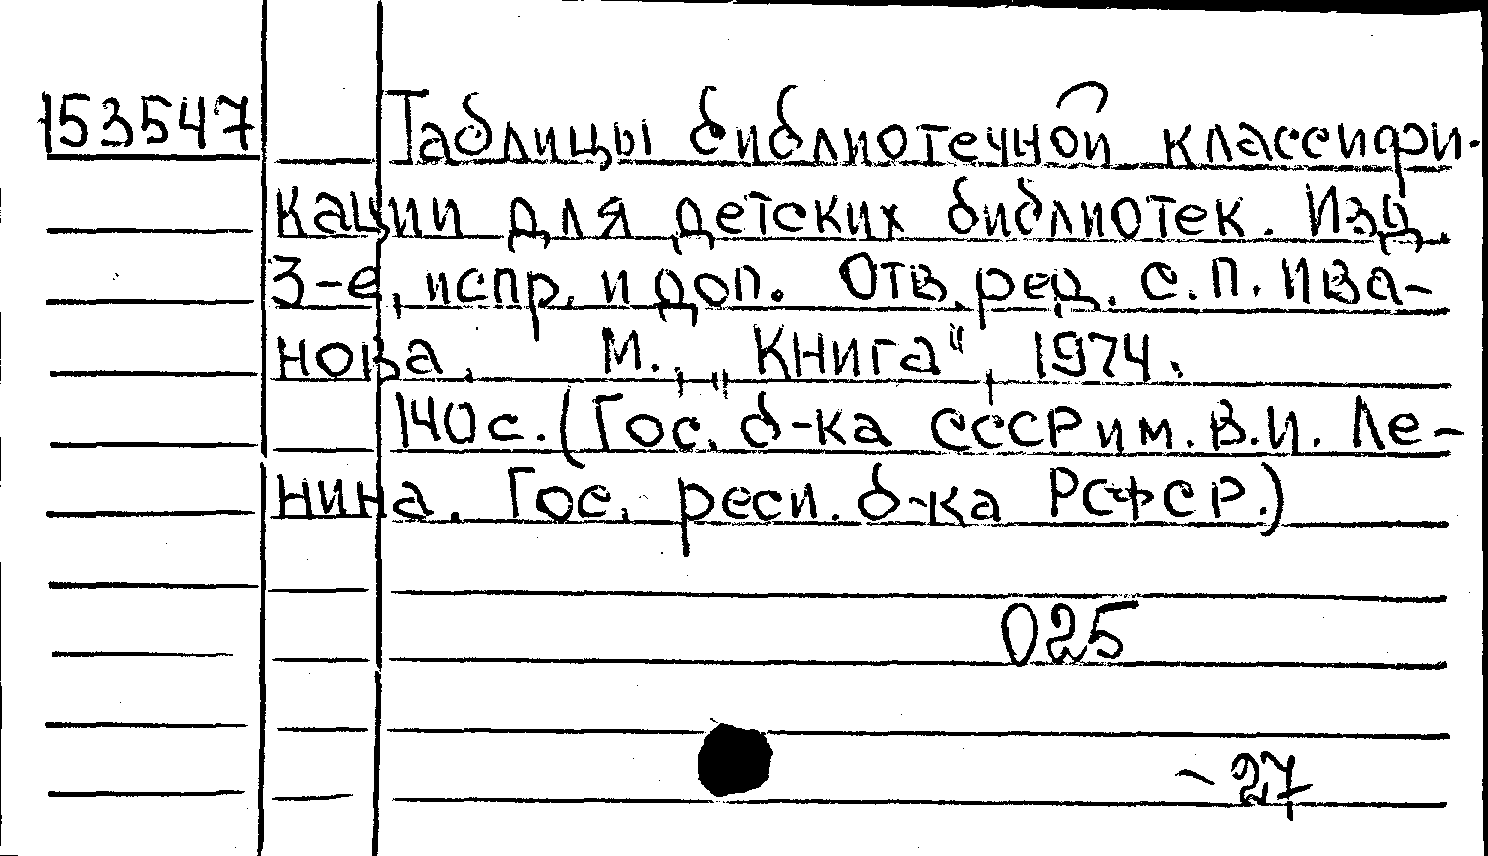 153547 Таблицы библиотечной классифи-
кации для детских библиотек. Изд.
3-е, испр. и доп. Отв. ред. С.П. Ива-
нова. М., „Книга", 1974.
140 с. (Гос. б-ка СССР им. В.И. Ле-
нина. Гос. респ. б-ка РСФСР.)
025
- 27